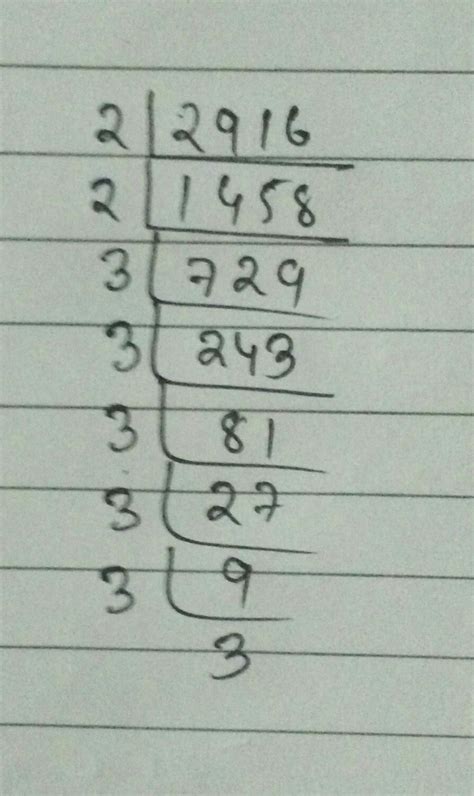 2 | 2916
2 | 1458
3 | 729
3 | 243
3 | 81
3 | 27
3 | 9
3